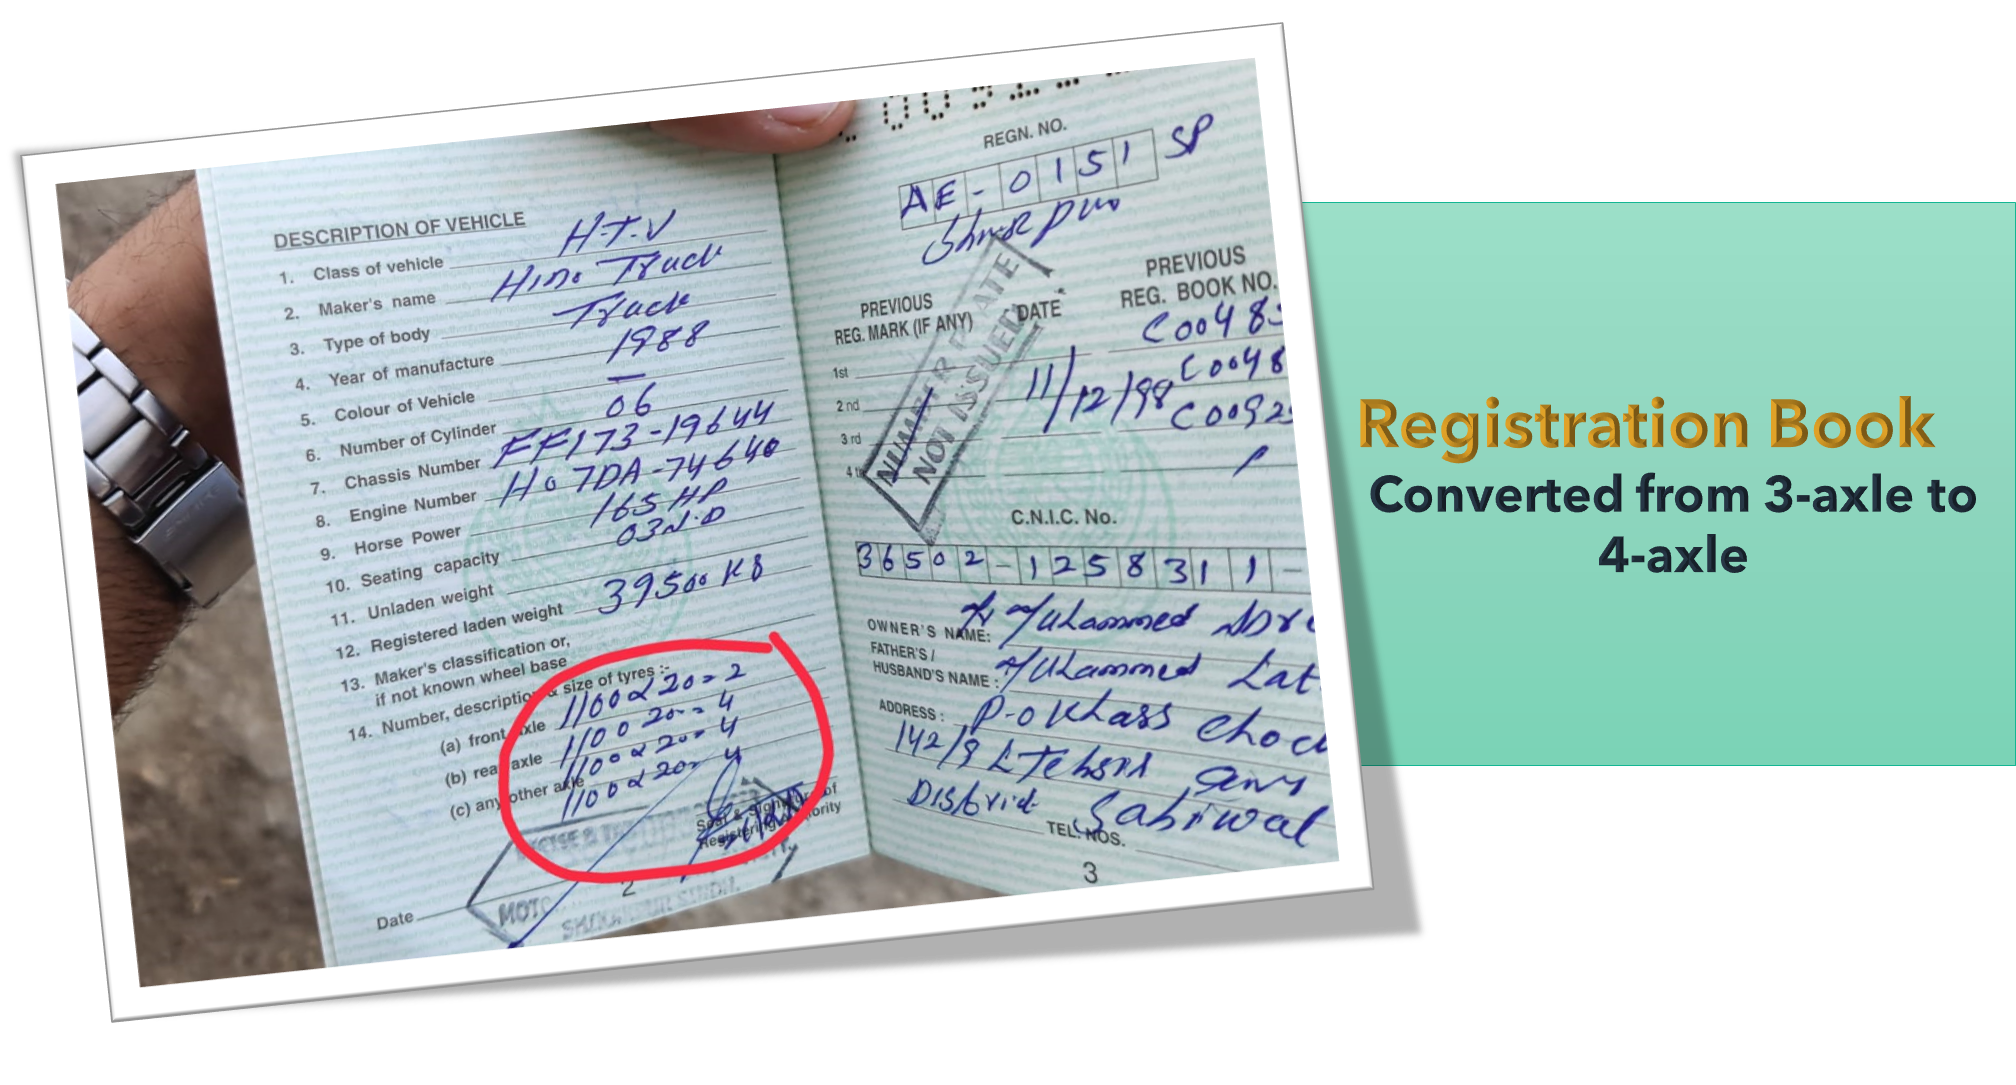 DESCRIPTION OF VEHICLE
1. Class of vehicle H.T.V
2. Maker's name Hino Truck
3. Type of body Truck
4. Year of manufacture 1988
5. Colour of Vehicle —
6. Number of Cylinder 06
7. Chassis Number FF173-19644
8. Engine Number H07DA-74640
9. Horse Power 165 HP
10. Seating capacity 03
11. Unladen weight
12. Registered laden weight 39500 KG
13. Maker's classification or,
if not known wheel base
14. Number, description & size of tyres :-
(a) front axle 1100 x 20 = 2
(b) rear axle 1100 20 = 4
(c) any other axle 1100 x 20 = 4
1100 x 20 = 4
Seal & Signature of
Registering Authority
Date
2
REGN. NO.
AE-0151 SP
PREVIOUS
REG. MARK (IF ANY)
DATE
PREVIOUS
REG. BOOK NO.
1st
2nd 11/12/98
3rd
4th
C0048
C0048
C0092
NUMBER PLATE
NOT ISSUED
C.N.I.C. No.
36502-1258311-
OWNER'S NAME: Muhammed
FATHER'S /
HUSBAND'S NAME : Muhammed
ADDRESS : P-O Khass
142/9 L Tehsil
District Sahiwal
TEL. NOS.
3
Registration Book
Converted from 3-axle to
4-axle